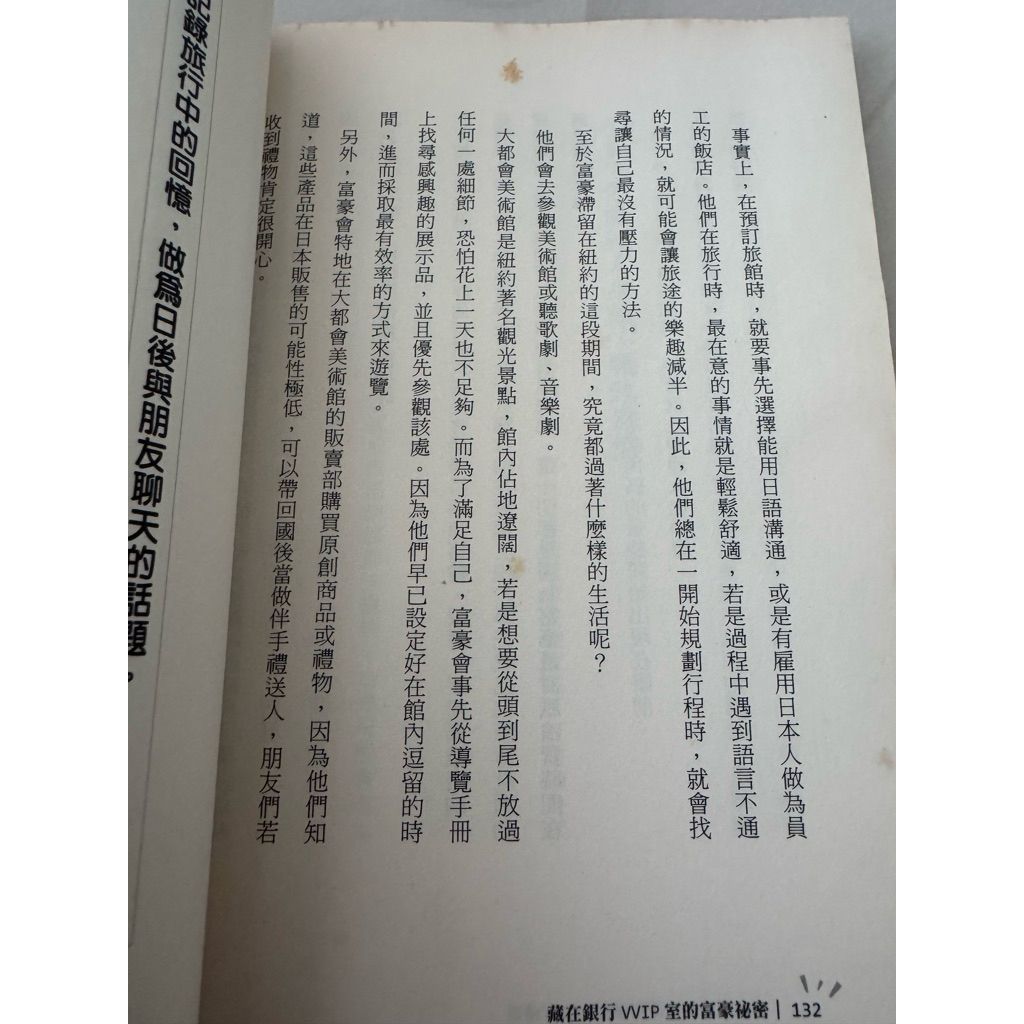 事實上，在預訂旅館時，就要事先選擇能用日語溝通，或是有雇用日本人做為員
工的飯店。他們在旅行時，最在意的事情就是輕鬆舒適，若是過程中遇到語言不通
的情況，就可能會讓旅途的樂趣減半。因此，他們總在一開始規劃行程時，就會找
尋讓自己最沒有壓力的方法。
至於富豪滯留在紐約的這段期間，究竟都過著什麼樣的生活呢？
他們會去參觀美術館或聽歌劇、音樂劇。
大都會美術館是紐約著名觀光景點，館內佔地遼闊，若是想要從頭到尾不放過
任何一處細節，恐怕花上一天也不足夠。而為了滿足自己，富豪會事先從導覽手冊
上找尋感興趣的展示品，並且優先參觀該處。因為他們早已設定好在館內逗留的時
間，進而採取最有效率的方式來遊覽。
另外，富豪會特地在大都會美術館的販賣部購買原創商品或禮物，因為他們知
道，這些產品在日本販售的可能性極低，可以帶回國後當做伴手禮送人，朋友們若
收到禮物肯定很開心。
記錄旅行中的回憶，做為日後與朋友聊天的話題。
藏在銀行 VVIP 室的富豪祕密｜132